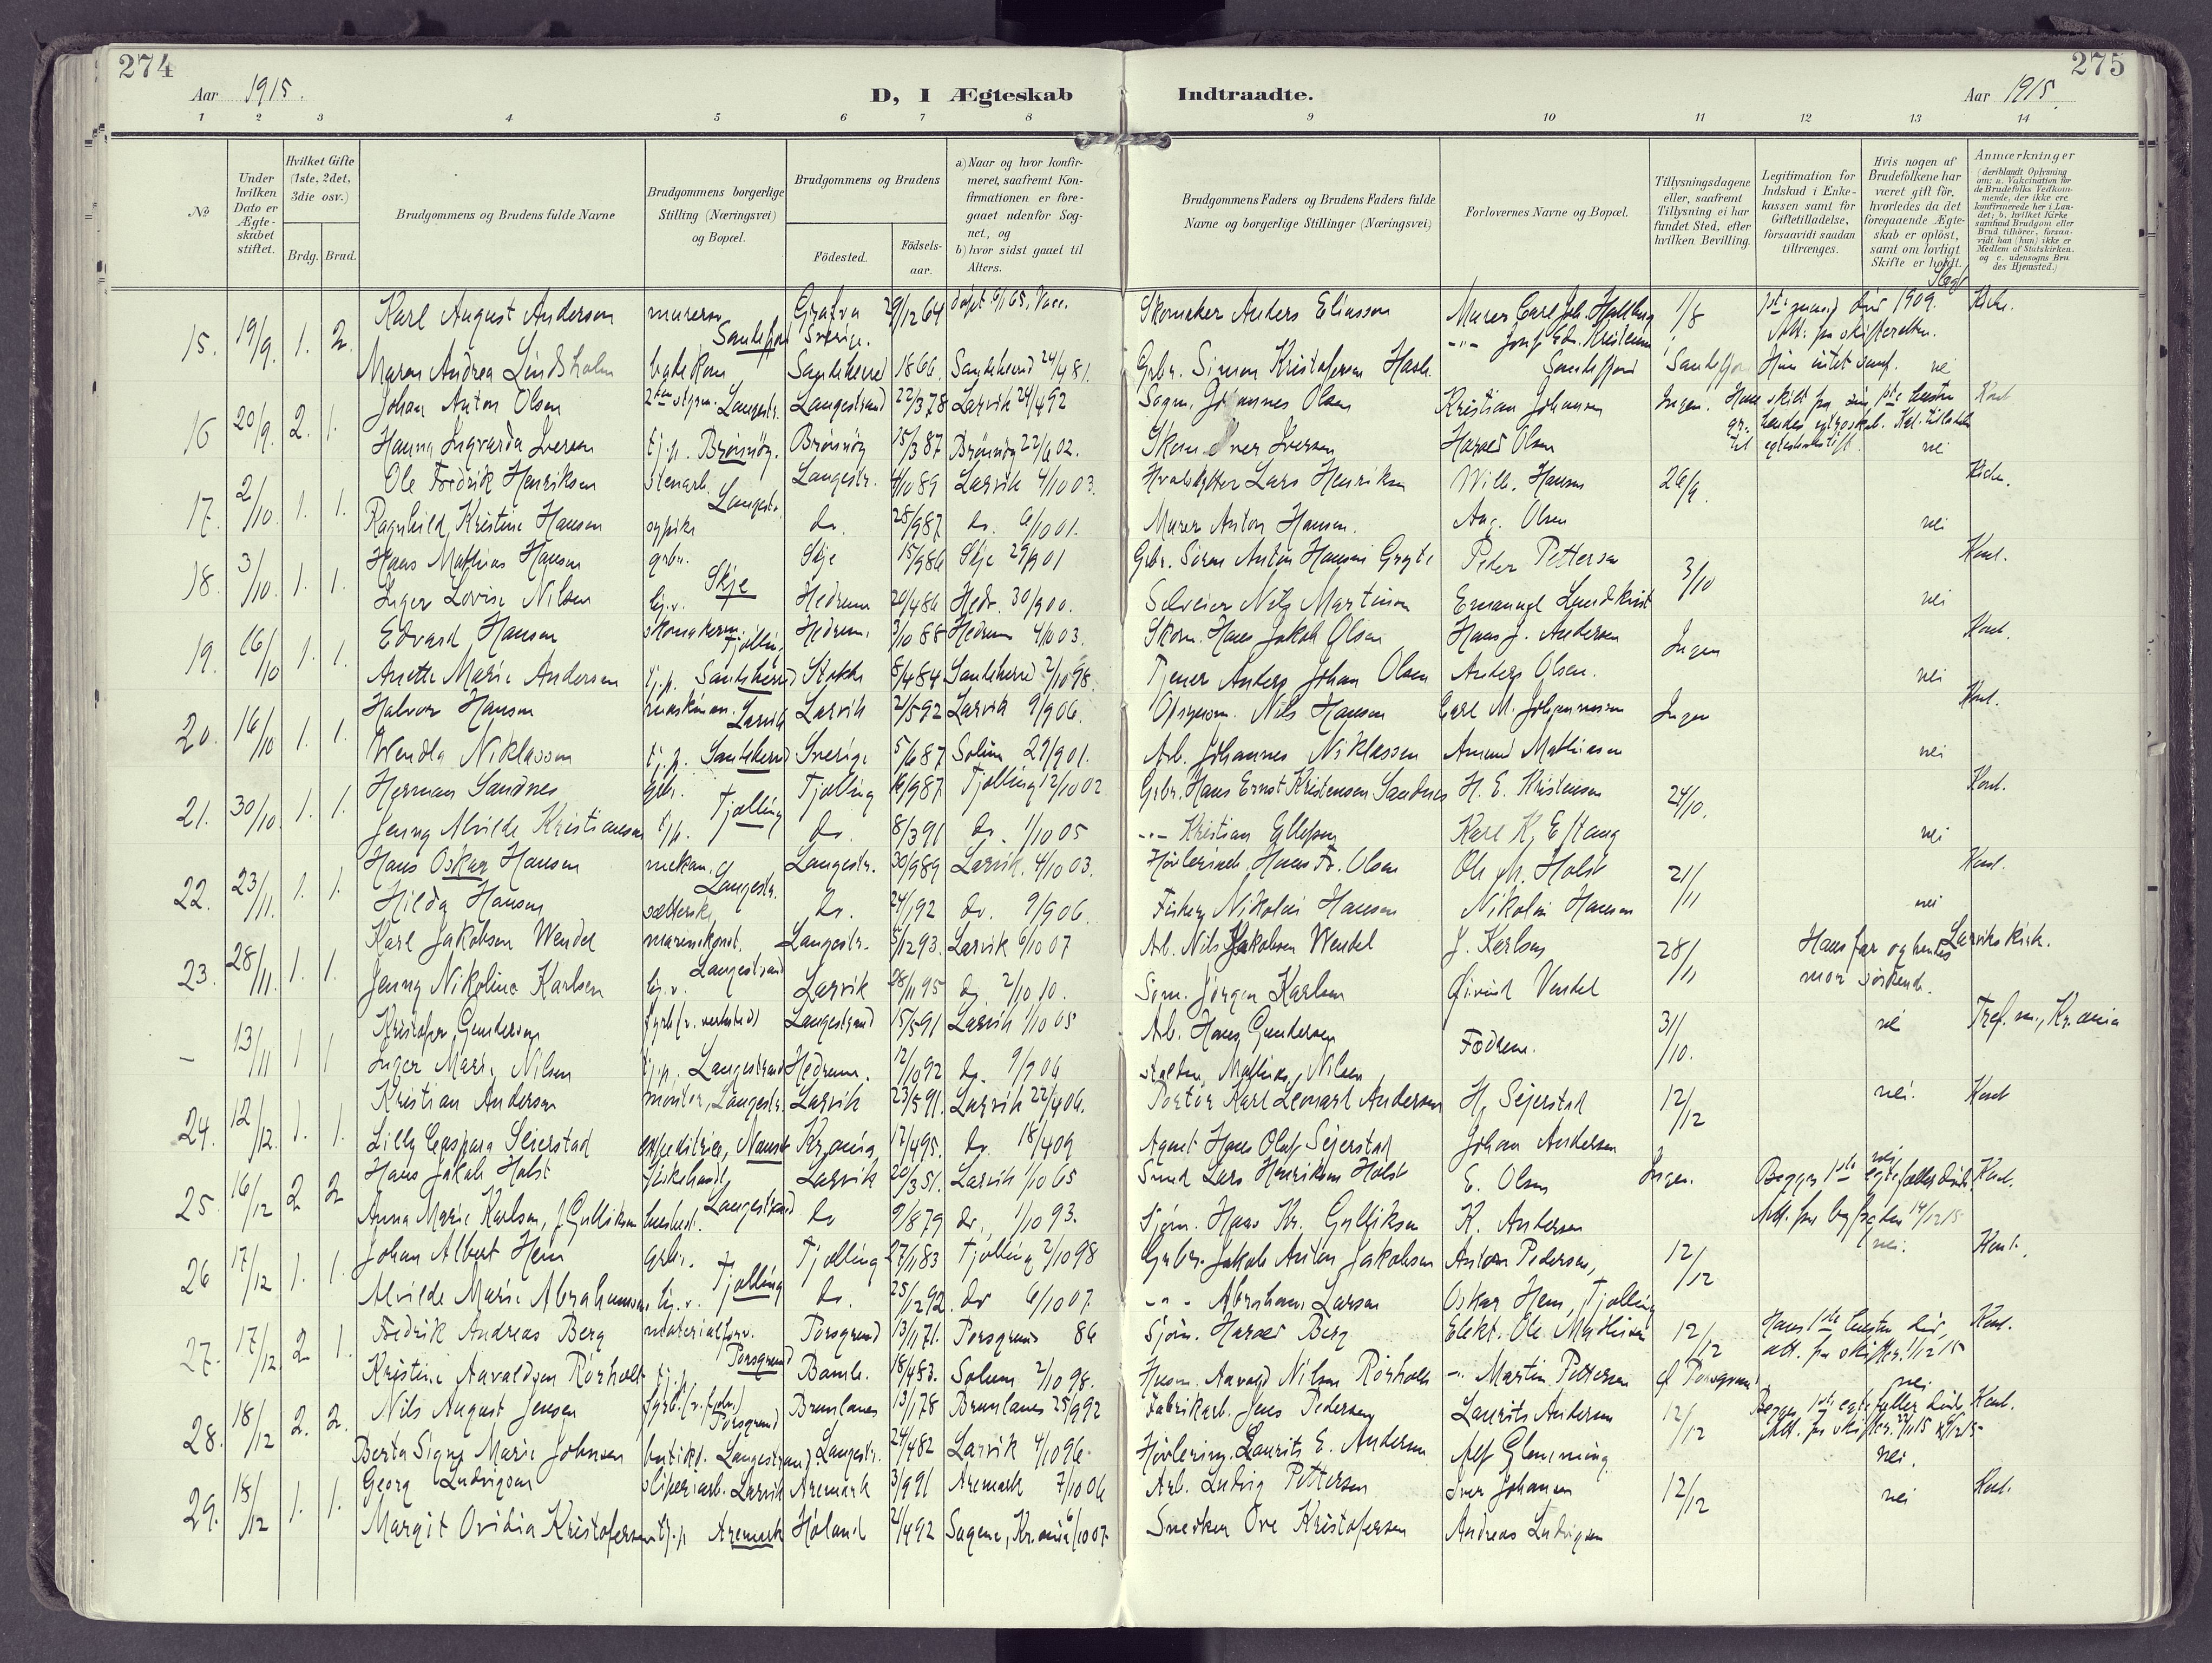 274
275
Aar 1915.
D, I Ægteskab Indtraadte.
Aar 1915.
1 2 3 4 5 6 7 8 9 10 11 12 13 14
No
Under hvilken Dato er Ægteskabet stiftet.
Hvilket Gifte (1ste, 2det, 3die osv.)
Brdg. Brud.
Brudgommens og Brudens fulde Navne
Brudgommens borgerlige Stilling (Næringsvei) og Bopæl.
Brudgommens og Brudens
Födested.
Födselsaar.
a) Naar og hvor konfirmeret, saafremt Konfirmationen er foregaaet udenfor Sognet, og
b) hvor sidst gaaet til Alters.
Brudgommens Faders og Brudens Faders fulde Navne og borgerlige Stillinger (Næringsvei)
Forlovernes Navne og Bopæl.
Tillysningsdagene eller, saafremt Tillysning ei har fundet Sted, efter hvilken Bevilling.
Legitimation for Indskud i Enkekassen samt for Giftetilladelse, forsaavidt saadan tiltrænges.
Hvis nogen af Brudefolkene har været gift för, hvorledes da det foregaaende Ægteskab er oplöst, samt om lovligt Skifte er holdt.
Anmærkninger (deriblandt Oplysning om: a. Vakcination for de Brudefolks Vedkommende, der ikke ere konfirmerede her i Landet; b. hvilket Kirkesamfund Brudgom eller Brud tilhörer, forsaavidt han (hun) ikke er Medlem af Statskirken, og c. udensogns Brudes Hjemsted.)
15. 19/9. 1. 2. Karl August Anderson murersv. Sandefjord Sverige. 29/12 64 Skomaker Anders Eliasson 1/8 1ste mand död 1909. Kirk.
Maren Andrea Lindsholm Sandeherred 1866. Sandeherred 24/4 81. Grbr. Simon Kristofersen Sandefjord nei
16 20/9. 2. 1. Johan Anton Olsen Langestr. Langestrand 22/3 78 Larvik 24/4 92 Johannes Olsen Kristian Johansen Ingen.
Hanna Ingvarda Iversen tj.p. Brønnøy. Brønnøy 15/3 87 Brønnøy 22/6 02. Skom. Iver Iversen Harald Olsen nei
17. 2/10. 1. 1. Ole Fredrik Henriksen stenarb. Langestr. Langestr. 4/10 89 Larvik 4/10 03. Hvalskytter Lars Henriksen Wilh. Hansen 26/9. Kirk.
Ragnhild Kristine Hansen sypike do. 28/9 87 do. 6/10 01. Murer Anton Hansen. Aug. Olsen nei
18. 3/10. 1. 1. Hans Mathias Hansen grbr. Skje Skje 15/9 86 Skje 29/9 01 Grbr. Sören Anton Hansen Peder Pettersen 3/10 Kont.
Inger Lovise Nilsen hj.v. Hedrum 20/4 86 Hedr. 30/9 00. Selveier Nils Martinsen Emanuel Lundkvist nei
19. 16/10 1. 1. Edvard Hansen skomakersv. Tjølling Hedrum. 3/10 88 Hedrum 4/10 03. Skom. Hans Jakob Olsen Hans J. Andersen Ingen Kont.
Anette Marie Andersen tj.p. Sandeherred Stokke 8/4 84 Sandeherred 2/10 98. Tjener Anders Johan Olsen Anders Olsen. nei
20. 16/10 1. 1. Halvor Hansen maskinm. Larvik Larvik 21/5 92 Larvik 9/9 06. Opsynsm. Nils Hansen Carl M. Johannessen Ingen Kont.
Wendla Niklasson tj.p. Sandeherred Sverige 5/6 87 Solum 29/9 01. Arb. Johannes Niklassen Amund Mathiasen nei
21. 30/10. 1. 1. Herman Sandnes grbr. Tjølling Tjølling 16/9 87 Tjølling 12/10 02 Grbr. Hans Ernst Kristensen Sandnes H. E. Kristensen 24/10. Kont.
Jenny Alvilde Kristiansen tj.p. do. 8/3 91 do. 1/10 05 -"- Kristian Ellefsen Karl K. Eftang nei
22. 23/11. 1. 1. Hans Oskar Hansen mekan. Langestr. Langestr. 30/9 89 Larvik. 4/10 03. Høvleriarb. Hans Fr. Olsen Ole M. Holst 21/11 Kont.
Hilda Hansen sætterske do. 24/1 92 do. 9/9 06. Fisker Nikolai Hansen Nikolai Hansen nei
23. 28/11. 1. 1. Karl Jakobsen Wendel marinekonst. Langestrand Langestr. 5/12 93. Larvik 6/10 07 Arb. Nils Jakobsen Wendel J. Karlsen 28/11 Hans far og hendes mor søskende. Larviks kirk.
Jenny Nikoline Karlsen hj.v. Larvik 28/11 95 do. 2/10 10. Søm. Jørgen Karlsen Øivind Vendel
- 13/11 1 1 Kristofer Gundersen fyrb. (v. verksted) Langestrand 15/5 91 Larvik 1/10 05 Arb. Hans Gundersen Fædrene. 31/10. nei Tref. m., Kr.ania
Inger Marie Nilsen tj.p. Langestrand Hedrum. 12/10 92 do. 9/9 06 Mathias Nilsen
24. 12/12. 1. 1. Kristian Andersen montør, Langestr. Larvik 23/5 91. Larvik 22/4 06. Portør Karl Leonard Andersen H. Sejerstad 12/12 nei. Kont
Lilly Caspara Seierstad expeditrice, Nanset Kr.ania, 17/4 95. do. 18/4 09 Agent Hans Olaf Sejerstad Johan Andersen
25. 16/12 2 2 Hans Jakob Holst fiskehandl. Langestrand Larvik 20/3 51. Larvik 1/10 65 Smed Lars Henriksen Holst E. Olsen Ingen. Begges 1ste egtefæller döde. nei Kont.
Anna Marie Karlsen, f. Gulliksen husbest. do 9/8 79 do. 1/10 93. Sjøm. Hans Kr. Gulliksen K. Andersen Att. fra byfogden 14/12 15
26 17/12 1. 1. Johan Albert Hem grbr. Tjølling Tjølling 27/11 83 Tjølling 2/10 98 Grbr. Jakob Anton Jakobsen Anton Pedersen, 12/12 nei. Kont.
Alvilde Marie Abrahamsen hj.v. do. 25/12 92. do 6/10 07. -"- Abraham Larsen Oskar Hem, Tjølling
27. 17/12 2 1. Fredrik Andreas Berg materialforv. Porsgrund Porsgrund 13/1 71. Porsgrund 86 Sjøm. Haraes Berg Elekt. Ole Mathisen 12/12 Hans 1ste hustru död, att. fra skifter. 1/12 15 Kont.
Kristine Aavaldsen Rörholt tj.p. Bamle. 18/4 83. Solum 2/10 98. Husm. Aavald Nilsen Rörholt -"- Martin Pettersen af Porsgrund. nei
28. 18/12 2. 2. Nils August Jensen Porsgrund Brunlanes 13/1 78 Brunlanes 25/9 92 Fabrikarb. Jens Pedersen Laurits Andersen 12/12 Begges 1ste egtefæller döde Kont.
Berta Signe Marie Johnsen butikd. Langestrand Langestr. 24/4 82 Larvik 4/10 96. Høvlerim. Laurits E. Andersen Alf Glemming nei.
29. 18/12 1. 1. Georg Ludvigsen sliperiarb. Larvik Aremark 3/9 91 Aremark 7/10 06 Arb. Ludvig Pettersen Iver Johansen 12/12 nei Kont.
Margit Ovidia Kristofersen tj.p. Aremark Høland 21/4 92 Sagene, Kr.ania 6/10 07. Snedker Ove Kristofersen Andreas Ludvigsen